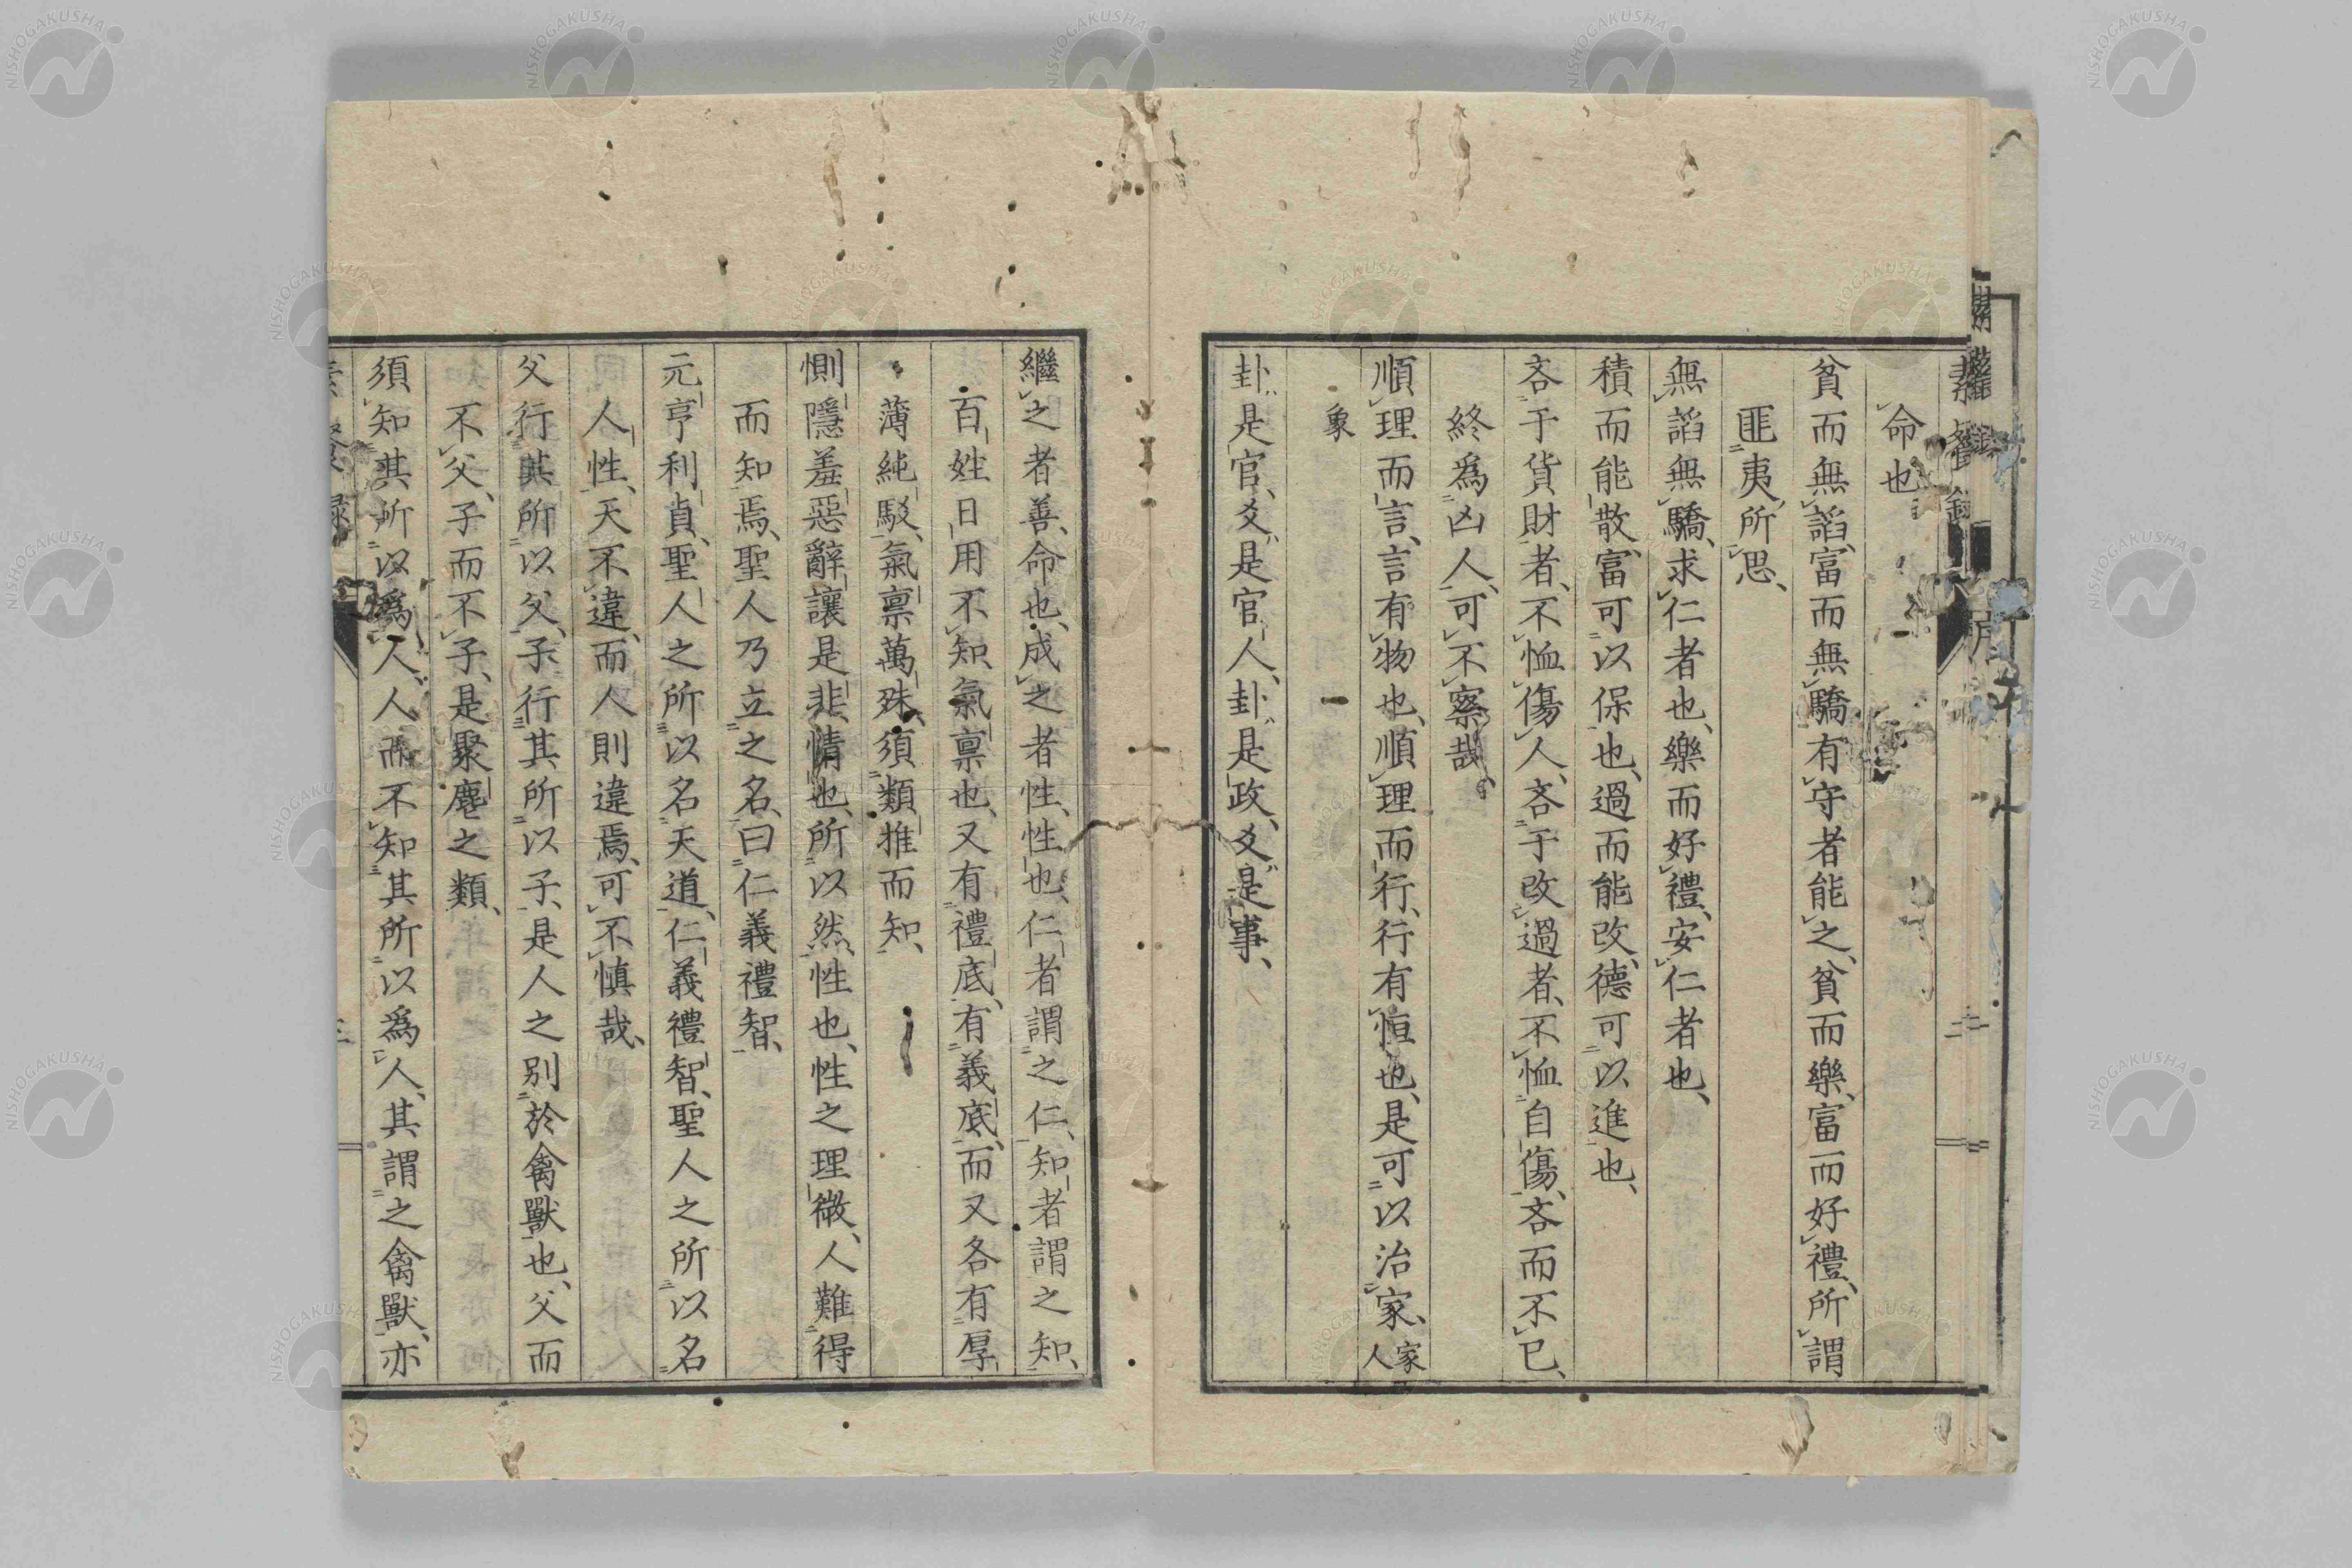 命也
貧而無諂、富而無驕、有守者能之、貧而樂、富而好禮、所謂
匪夷所思、
無諂無驕、求仁者也、樂而好禮、安仁者也、
積而能散、富可以保也、過而能改、德可以進也、
吝于貨財者、不恤傷人、吝于改過者、不恤自傷、吝而不已、
終爲凶人、可不察哉、
順理而言、言有物也、順理而行、行有恒也、是可以治家、家人
象
卦是官、爻是官人、卦是政、爻是事、
繼之者善、命也、成之者性、性也、仁者謂之仁、知者謂之知、
百姓日用不知、氣禀也、又有禮底、有義底、而又各有厚
薄純駁、氣禀萬殊、須類推而知、
惻隱羞惡辭讓是非、情也、所以然、性也、性之理微、人難得
而知焉、聖人乃立之名、曰仁義禮智、
元亨利貞、聖人之所以名天道、仁義禮智、聖人之所以名
人性、天不違、而人則違焉、可不慎哉、
父行其所以父、子行其所以子、是人之別於禽獸也、父而
不父、子而不子、是聚麀之類、
須知其所以爲人、人而不知其所以爲人、其謂之禽獸、亦
三
NISHOGAKUSHA